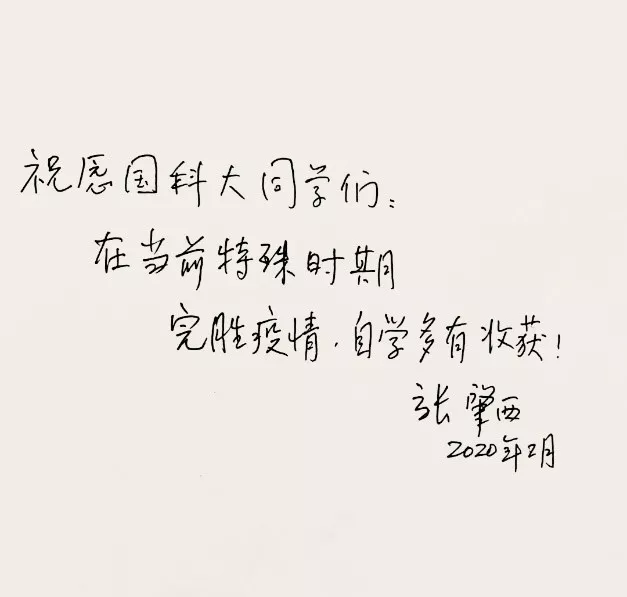 祝愿国科大同学们：
在当前特殊时期
完胜疫情，自学多有收获！
张肇西
2020年2月